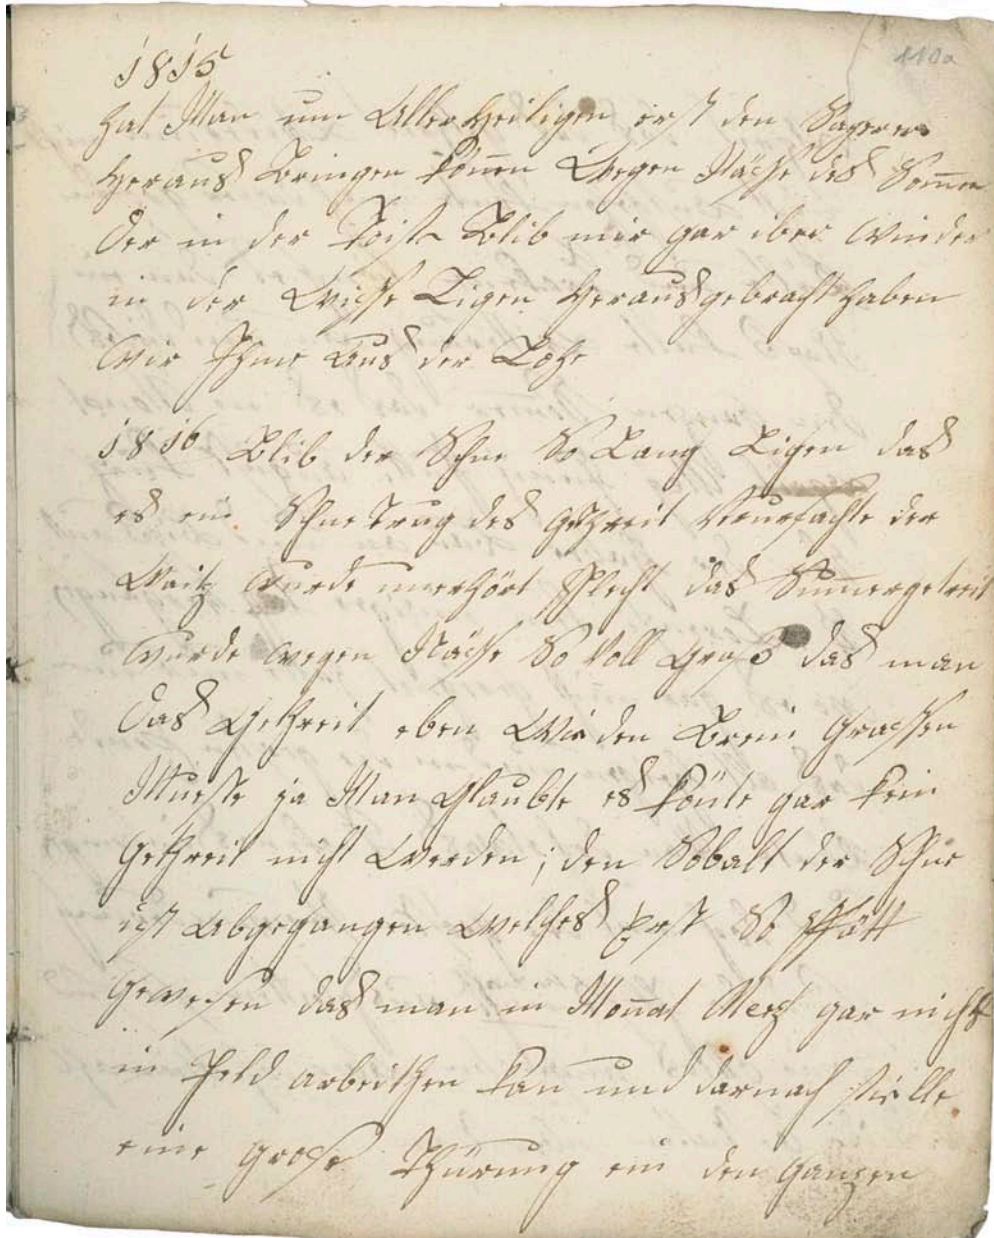 110a
1815
hat Man um Aller Heiligen erst den
Heraus Bringen könen Wegen Nässe des Somer
Der in der Blib mir gar iber Winder
in der Wisse Ligen Heraus gebracht haben
Wir Ihme Aus der
1816 Blib der Schne So Lang Ligen das
es ein Schne Trug des Getreit Veursachte der
Waitz Wurde unerhört Schlecht das Sumergetreit
Wurde Wegen Nässe So Voll Graß das man
Das Gethreit eben Wie den Brein Grassen
Mueste ja Man Glaubte es könte gar kein
Gethreit nicht Werden; den Sobalt der Schne
ist Abgegangen Welches Erst So Spätt
Gewesen das man in Monat Merz gar nicht
in Feld arbeithen kan und darnach stielle
eine große Thürung ein den Ganzen